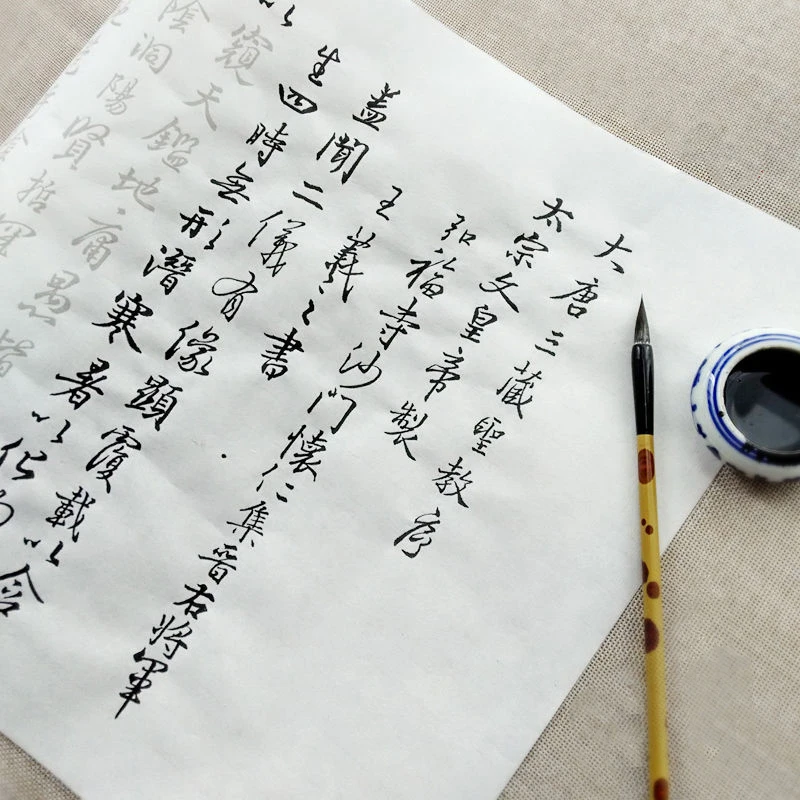 大唐三藏聖教序
太宗文皇帝製
弘福寺沙門懷仁集晉右將軍
王羲之書
蓋聞二儀有像顯覆載以含
生四時無形潛寒暑以化物
以窺天鑑地庸愚皆
陰洞陽賢哲罕